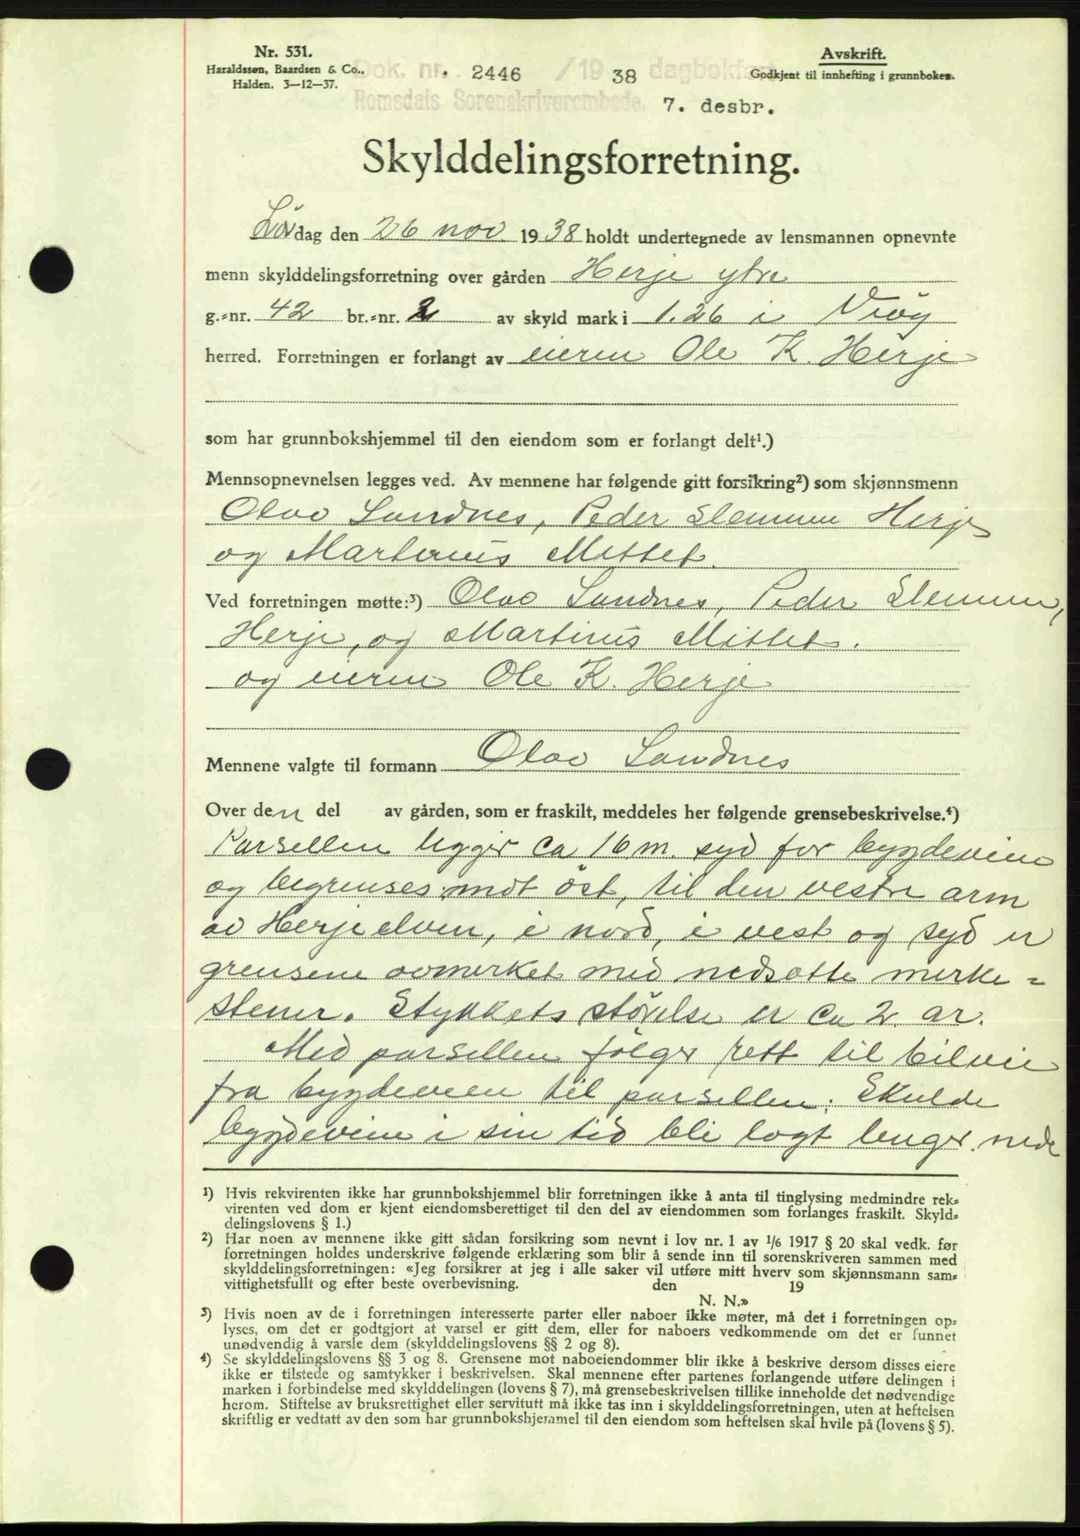 Nr. 531.
Haraldssøn, Baardsen & Co.,
Halden. 3—12—37.
Avskrift.
Godkjent til innhefting i grunnboken.
Dok. nr. 2446 /19 38 dagbokført
Romsdals Sorenskriverembede. 7. desbr.
Skylddelingsforretning.
Lördag den 26 nov. 1938 holdt undertegnede av lensmannen opnevnte
menn skylddelingsforretning over gården Herje ytre
g.=nr. 42 br.=nr. 2 av skyld mark i 1.26 i Vröy
herred. Forretningen er forlangt av eieren Ole K. Herje
som har grunnbokshjemmel til den eiendom som er forlangt delt¹.)
Mennsopnevnelsen legges ved. Av mennene har følgende gitt forsikring²) som skjønnsmenn
Olav Sandnes, Peder Slemmen Herje
og Martinus Mittet.
Ved forretningen møtte:³) Olav Sandnes, Peder Slemmen,
Herje, og Martinus Mittet.
og eieren Ole K. Herje
Mennene valgte til formann Olav Sandnes
Over den del av gården, som er fraskilt, meddeles her følgende grensebeskrivelse.⁴)
Parsellen ligger ca 16 m. syd for bygdeveien
og begrenses mot öst, til den vestre arm
av Herjeelven, i nord, i vest og syd er
grensene avmerket med nedsatte merke=
stener. Stykkets störelse er ca 2. ar.
Med parsellen fölger rett til bilvei
fra bygdeveien til parsellen. Skulde
bygdeveien i sin tid bli lagt lenger nede
¹) Hvis rekvirenten ikke har grunnbokshjemmel blir forretningen ikke å anta til tinglysing medmindre rek=
virenten ved dom er kjent eiendomsberettiget til den del av eiendommen som forlanges fraskilt. Skyld=
delingslovens § 1.)
²) Har noen av mennene ikke gitt sådan forsikring som nevnt i lov nr. 1 av 1/6 1917 § 20 skal vedk. før
forretningen holdes underskrive følgende erklæring som blir å sende inn til sorenskriveren sammen med
skylddelingsforretningen: «Jeg forsikrer at jeg i alle saker vil utføre mitt hverv som skjønnsmann sam=
vittighetsfullt og efter beste overbevisning. den 19
N. N.»
³) Hvis noen av de i forretningen interesserte parter eller naboer ikke møter, må det i forretningen op=
lyses, om det er godtgjort at varsel er gitt dem, eller for naboers vedkommende om det er funnet
unødvendig å varsle dem (skylddelingslovens §§ 2 og 8).
⁴) Se skylddelingslovens §§ 3 og 8. Grensene mot naboeiendommer blir ikke å beskrive dersom disses eiere
ikke er tilstede og samtykker i beskrivelsen. Skal mennene efter partenes forlangende utføre delingen i
marken i forbindelse med skylddelingen (lovens § 7), må grensebeskrivelsen tillike inneholde det nødvendige
herom. Stiftelse av bruksrettighet eller servitutt må ikke tas inn i skylddelingsforretningen, uten at heftelsen
skriftlig er vedtatt av den som har grunnbokshjemmel til den eiendom som heftelsen skal hvile på (lovens § 5).